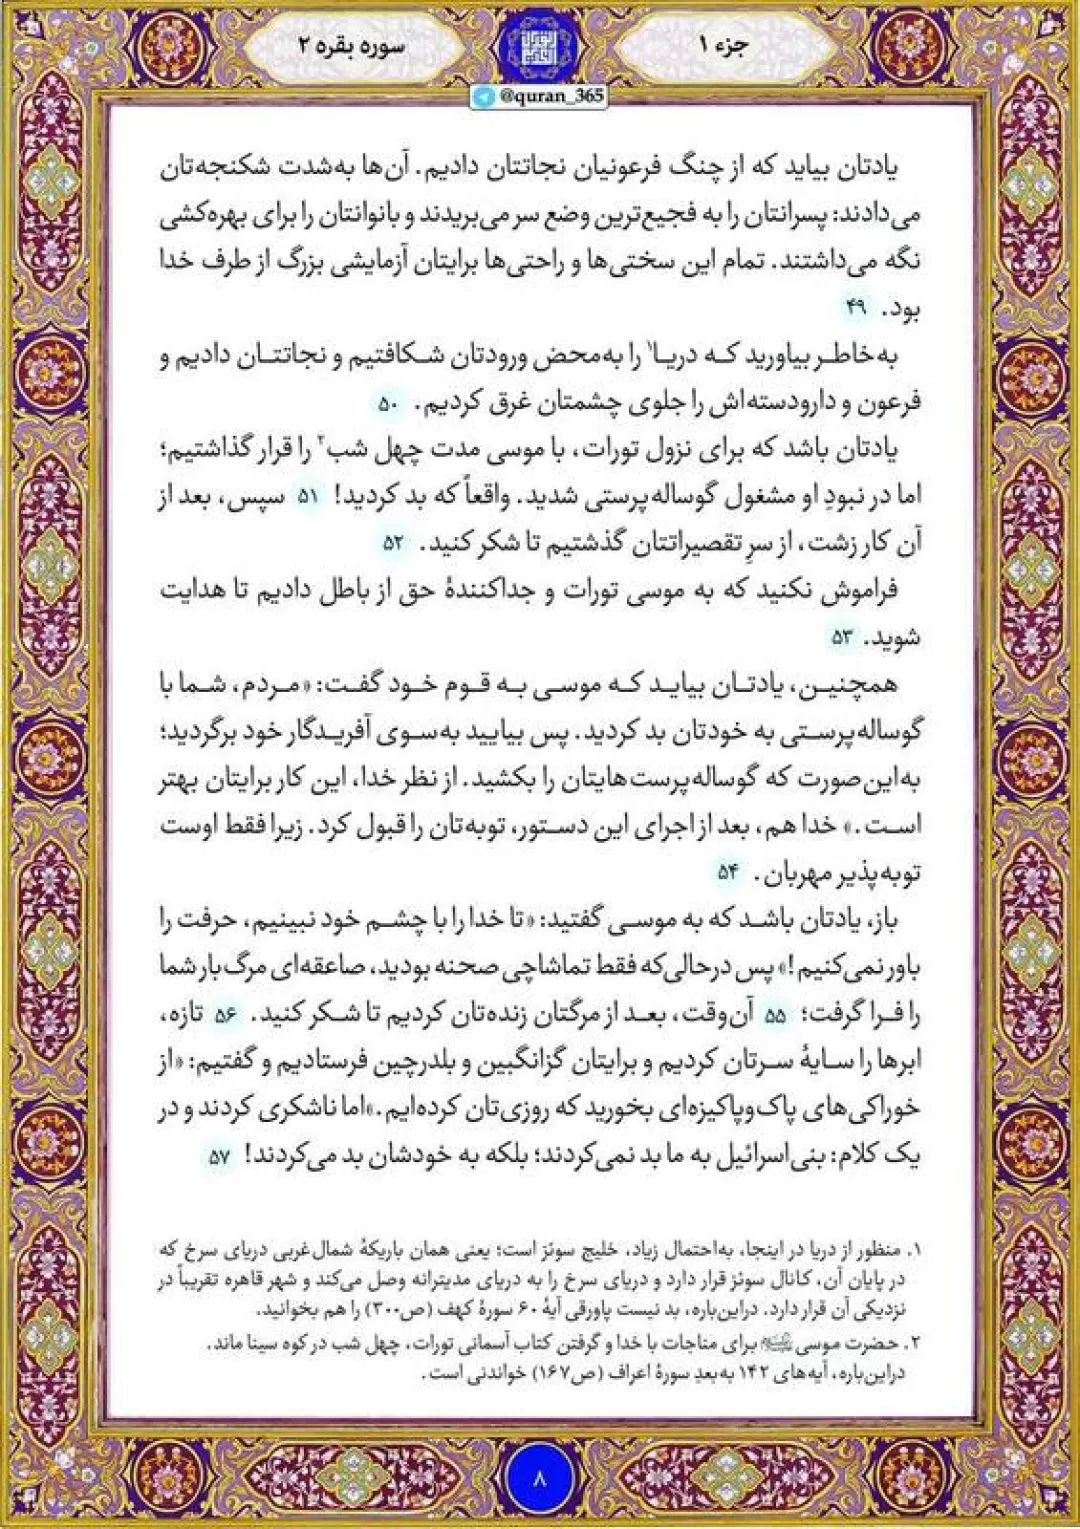 جزء ۱
سوره بقره ۲
@quran_365
یادتان بیاید که از چنگ فرعونیان نجاتتان دادیم. آن‌ها به‌شدت شکنجه‌تان
می‌دادند: پسرانتان را به فجیع‌ترین وضع سر می‌بریدند و بانوانتان را برای بهره‌کشی
نگه می‌داشتند. تمام این سختی‌ها و راحتی‌ها برایتان آزمایشی بزرگ از طرف خدا
بود. ۴۹
به‌خاطر بیاورید که دریا۱ را به‌محض ورودتان شکافتیم و نجاتتان دادیم و
فرعون و دارودسته‌اش را جلوی چشمتان غرق کردیم. ۵۰
یادتان باشد که برای نزول تورات، با موسی مدت چهل شب۲ را قرار گذاشتیم؛
اما در نبودِ او مشغول گوساله‌پرستی شدید. واقعاً که بد کردید! ۵۱ سپس، بعد از
آن کار زشت، از سرِ تقصیراتتان گذشتیم تا شکر کنید. ۵۲
فراموش نکنید که به موسی تورات و جداکنندهٔ حق از باطل دادیم تا هدایت
شوید. ۵۳
همچنین، یادتان بیاید که موسی به قوم خود گفت: «مردم، شما با
گوساله‌پرستی به خودتان بد کردید. پس بیایید به‌سوی آفریدگار خود برگردید؛
به‌این‌صورت که گوساله‌پرست‌هایتان را بکشید. از نظر خدا، این کار برایتان بهتر
است.» خدا هم، بعد از اجرای این دستور، توبه‌تان را قبول کرد. زیرا فقط اوست
توبه‌پذیر مهربان. ۵۴
باز، یادتان باشد که به موسی گفتید: «تا خدا را با چشم خود نبینیم، حرفت را
باور نمی‌کنیم!» پس درحالی‌که فقط تماشاچی صحنه بودید، صاعقه‌ای مرگ‌بار شما
را فرا گرفت؛ ۵۵ آن‌وقت، بعد از مرگتان زنده‌تان کردیم تا شکر کنید. ۵۶ تازه،
ابرها را سایهٔ سرتان کردیم و برایتان گزانگبین و بلدرچین فرستادیم و گفتیم: «از
خوراکی‌های پاک‌وپاکیزه‌ای بخورید که روزی‌تان کرده‌ایم.» اما ناشکری کردند و در
یک کلام: بنی‌اسرائیل به ما بد نمی‌کردند؛ بلکه به خودشان بد می‌کردند! ۵۷
۱. منظور از دریا در اینجا، به‌احتمال زیاد، خلیج سوئز است؛ یعنی همان باریکهٔ شمال‌غربی دریای سرخ که
در پایان آن، کانال سوئز قرار دارد و دریای سرخ را به دریای مدیترانه وصل می‌کند و شهر قاهره تقریباً در
نزدیکی آن قرار دارد. دراین‌باره، بد نیست پاورقی آیهٔ ۶۰ سورهٔ کهف (ص۳۰۰) را هم بخوانید.
۲. حضرت موسی برای مناجات با خدا و گرفتن کتاب آسمانی تورات، چهل شب در کوه سینا ماند.
دراین‌باره، آیه‌های ۱۴۲ به‌بعدِ سورهٔ اعراف (ص۱۶۷) خواندنی است.
۸